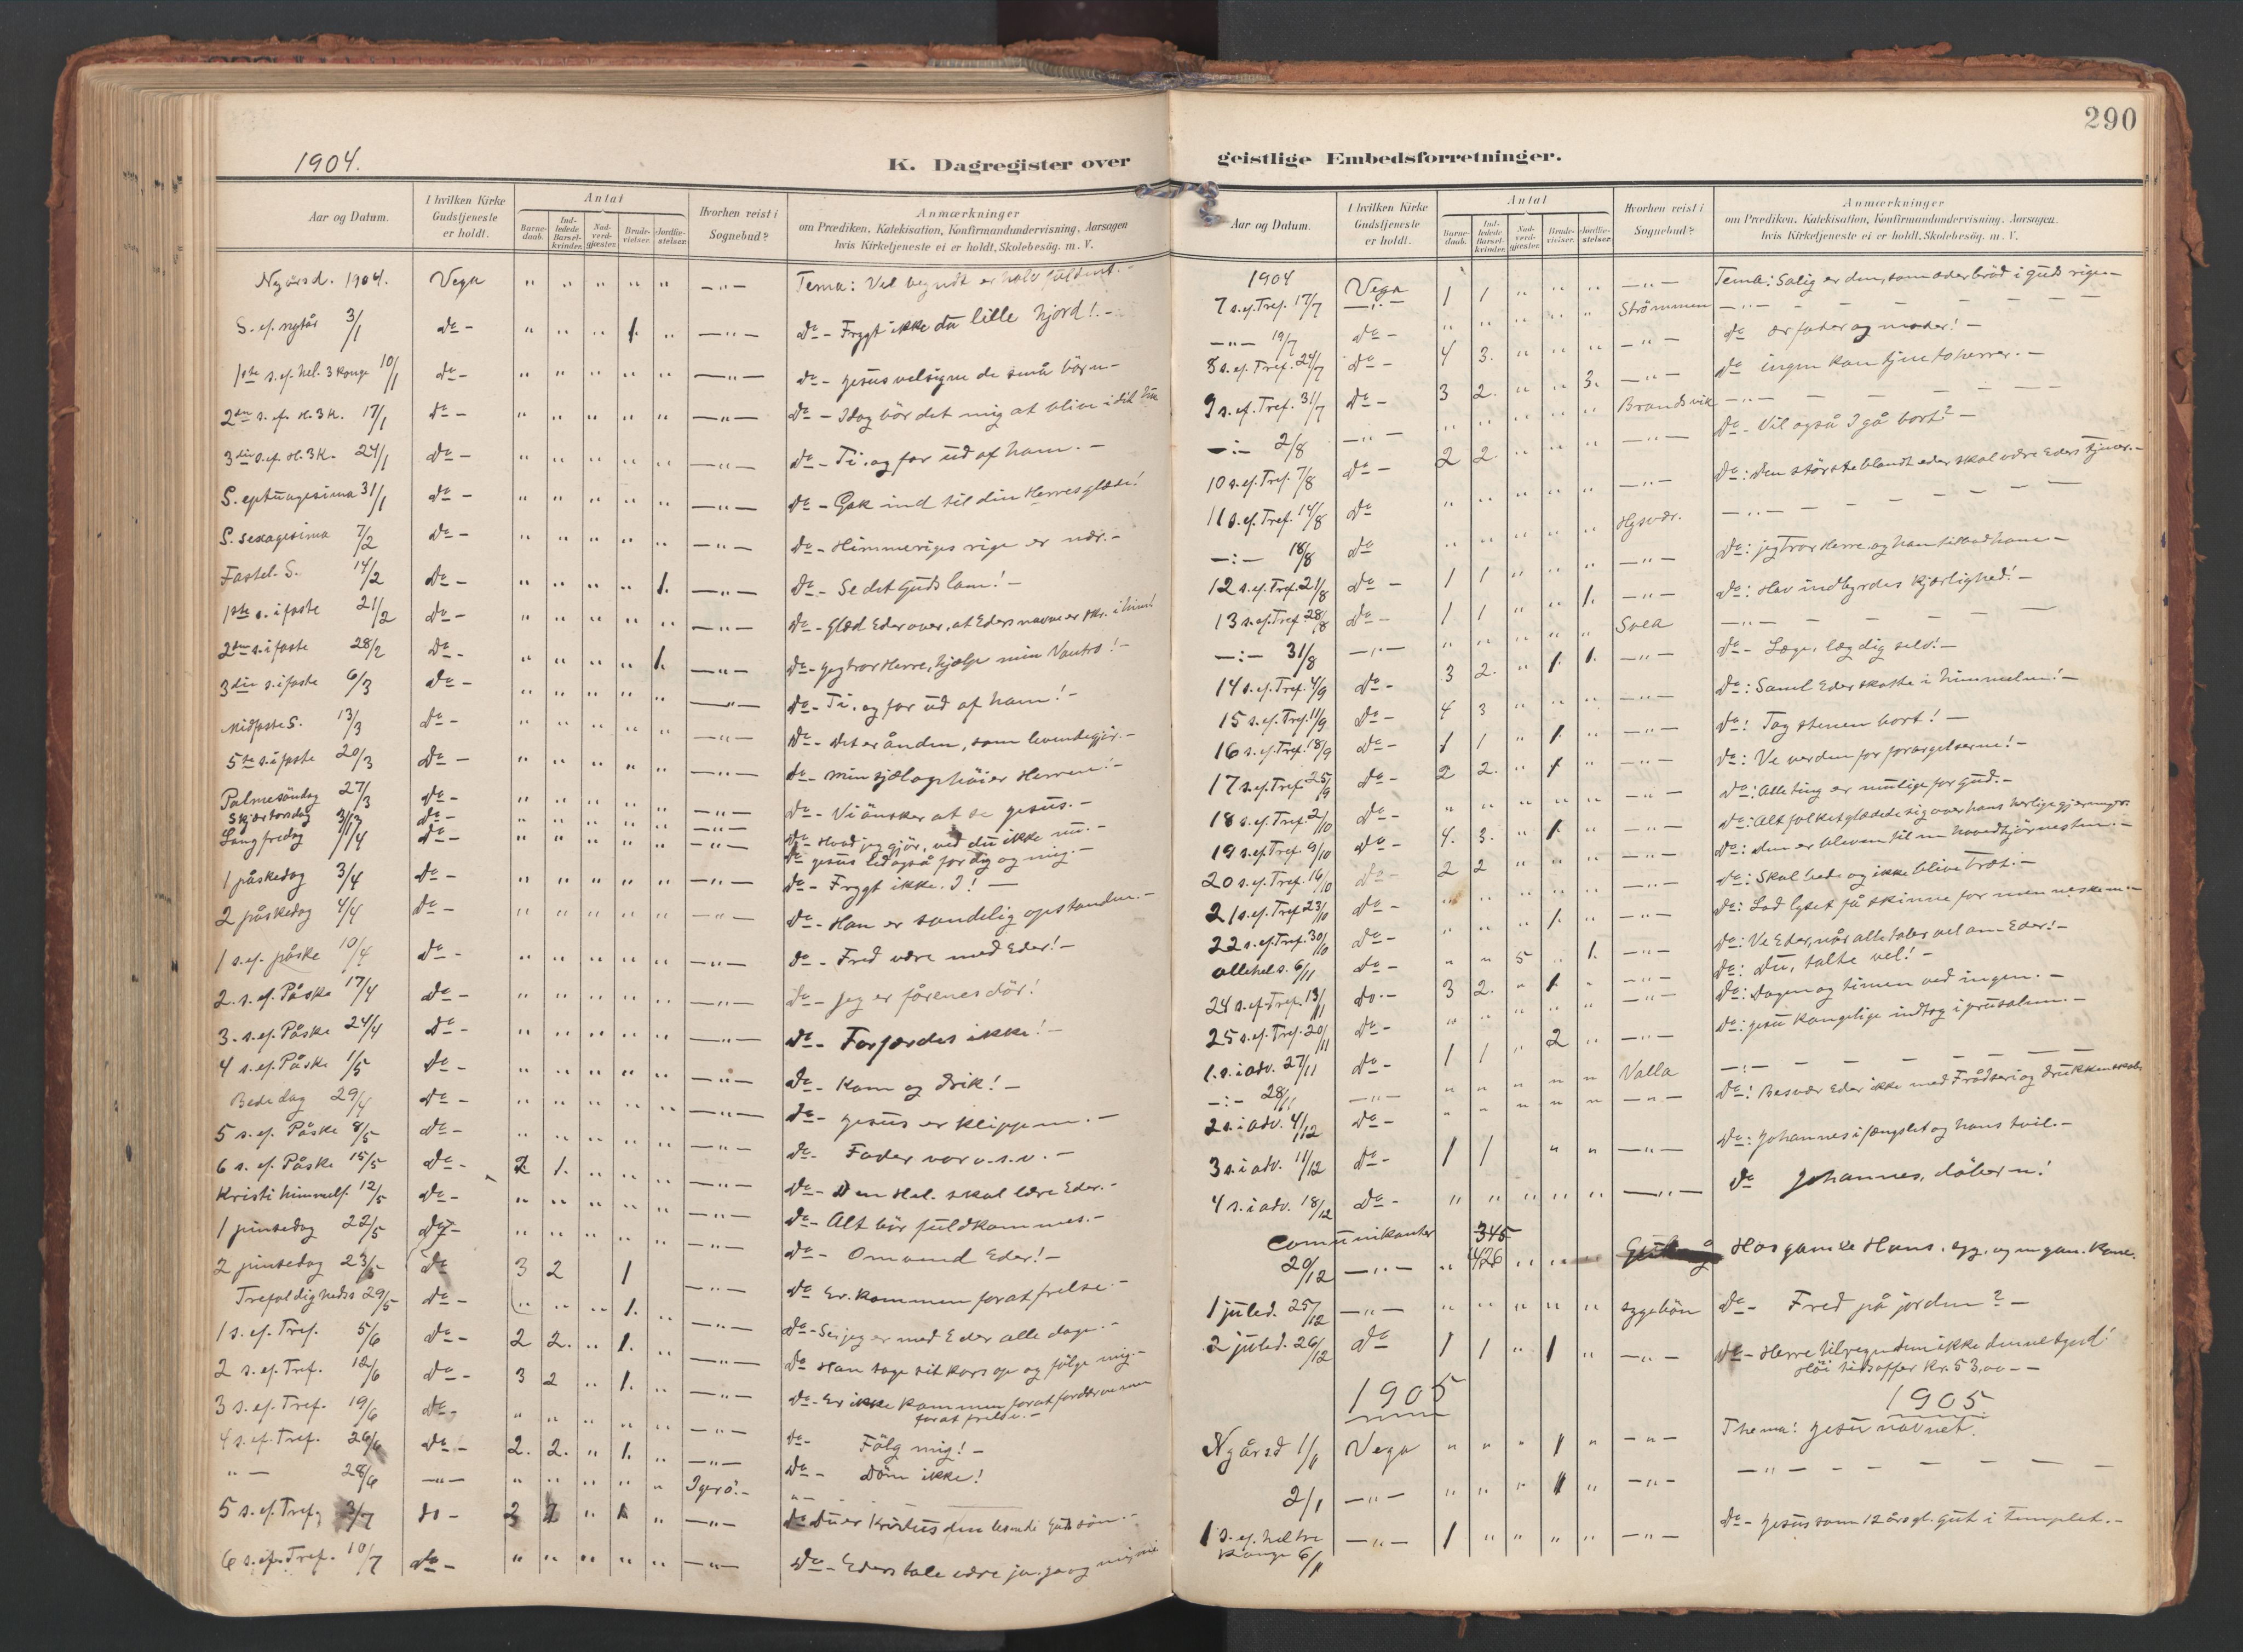 290
1904.
K. Dagregister over
geistlige Embedsforretninger.
Aar og Datum.
I hvilken Kirke Gudstjeneste er holdt.
Antal
Barnedaab.
Indledede Barselkvinder.
Nadverdgjester.
Brudevielser.
Jordfæstelser.
Hvorhen reist i Sognebud?
Anmærkninger
om Prædiken, Katekisation, Konfirmandundervisning, Aarsagen
hvis Kirketjeneste ei er holdt, Skolebesög. m. V.
Nyårsd. 1904. Vega " " " " " —"— Tema: Vel begyndt er halv fuldent.-
S. ef. nytår 3/1 do- " " " 1. " —"— do- Frygt ikke du lille hjord!-
1ste s. ef. hel. 3 konge 10/1 do- " " " " " —"— do- Jesus velsigne de små börn-
2den s. ef. H. 3 K. 17/1 do- " " " " " —"— do- Idag bör det mig at blive i dit
3die s. ef. H. 3 K. 24/1 do- " " " " " —"— do- Ti. og far ud af ham.-
S. eptuagesima 31/1 do- " " " " " —"— do- Gak ind til din Herres glæde!
S. sexagesima 7/2 do- " " " " " —"— do- Himmeriges rige er nær.-
Fastel. S. 14/2 do- " " " " 1. —"— do- Se det Guds lam!-
1ste s. i faste 21/2 do- " " " " " —"— do- Glæd Eder over, at Eders navne er skr. i himl
2den s. i faste 28/2 do- " " " " 1. —"— do- Jeg tror Herre, hjælp min Vantro!-
3die s. i faste 6/3 do- " " " " " —"— do- Ti. og far ud af ham!-
Midfaste S. 13/3 do- " " " " " —"— do- Det er ånden, som levendegjör.-
5te s. i faste 20/3 do- " " " " " —"— do- Min sjæl ophöier Herren!-
Palmesöndag 27/3 do- " " " " " —"— do- Vi önsker at se Jesus.-
Skjærtorsdag 31/3 do- " " " " " —"— do- Hvad jeg gjör, ved du ikke nu.-
Langfredag 1/4 do- " " " " " —"— do Jesus led også for dig og mig.-
1 påskedag 3/4 do- " " " " " —"— do- Frygt ikke. I! —
2 påskedag 4/4 do- " " " " " —"— do- Han er sandelig opstanden.-
1 s. ef. påske 10/4 do- " " " " " —"— do- Fred være med Eder!-
2. s. ef. Påske 17/4 do- " " " " " —"— do- Jeg er fårenes dör!
3. s. ef. Påske 24/4 do- " " " " " —"— do- Forfærdes ikke!-
4 s. ef. Påske 1/5 do- " " " " " —"— do- Kom og drik!-
Bededag 29/4 do- " " " " " —"— do- Jesus er klippen.-
5 s. ef. Påske 8/5 do- " " " " " —"— do- Fader vor o.s.v.-
6 s. ef. Påske 15/5 do- 2. 1. " " " —"— do- Den Hel. skal lære Eder.-
Kristi himmelf. 12/5 do- " " " " " —"— do- Alt bör fuldkommes.-
1 pinsedag 22/5 do- " " " " " —"— do- Omvend Eder!-
2 pinsedag 23/5 do 3 2 1 —"— do Er kommen for at frelse-
Trefoldigheds 29/5 do- " " " 1. " —"— do- Se jeg er med Eder alle dage.-
1 s. ef. Tref. 5/6 do- 2 2. " 1. " —"— do Han tage sit kors op og fölge mig-
2 s. ef. Tref. 12/6 do- 3 2 " 1. " —"— do- Er ikke kommen for at fordærve men
for at frelse.-
3 s. ef. Tref. 19/6 do- " " " " " —"— do- Fölg mig!-
4 s. ef. Tref. 26/6 do- 2. 2. " 1. " —"— do- Döm ikke!
"— 28/6 —"— " " " " " Igerö.-
5 s. ef. Tref. 3/7 do- 2 " " —"— do Du er Kristus den levende Guds sön.-
6 s. ef. Tref. 10/7 do- " " " " " —"— do- Eders tale være ja, ja og
Aar og Datum.
I hvilken Kirke Gudstjeneste er holdt.
Antal
Barnedaab.
Indledede Barselkvinder.
Nadverdgjester.
Brudevielser.
Jordfæstelser.
Hvorhen reist i Sognebud?
Anmærkninger
om Prædiken, Katekisation, Konfirmandundervisning, Aarsagen
hvis Kirketjeneste ei er holdt, Skolebesög. m. V.
1904
7 s. ef. Tref. 17/7 Vega 1 1 " " " —"— Tema: Salig er den, som æder bröd i guds rige.-
—"— 19/7 —"— " " " " " Strömmen —"— — —
8 s. ef. Tref. 24/7 do- 4 3. " " " —"— do ær fader og moder!-
9 s. ef. Tref. 31/7 do- 3 2. " " 3. —"— do ingen kan tjene to herrer.-
—:— 2/8 —"— " " " " " Brandsvik —"— — —
10 s. ef. Tref. 7/8 do- 2 2. " " " —"— do- Vil også I gå bort?-
11 s. ef. Tref. 14/8 do " " " " " —"— do: Den störste blandt eder skal være Eders tjener.-
—:— 18/8 do " " " " " Hysvær. —"— — —
12 s. ef. Tref. 21/8 do- 1 1 " " " —"— do: Jeg tror Herre og han tilbad ham-
13 s. ef. Tref 28/8 do- 1 1 " " 1. —"— do: Hav indbyrdes kjærlighed!-
—:— 31/8 —"— " " " " " Svea —"— — —
14 s. ef. Tref. 4/9 do- 3 2. " 1. 1. —"— do- Læge, læg dig selv!-
15 s. ef. Tref. 11/9 do- 4 3 " " " —"— do: Saml Eder skatte i himmelen!-
16 s. ef. Tref. 18/9 do- 1 1 " 1. " —"— do: Tag stenen bort!-
17 s. ef. Tref. 25/9 do- 2 2. " 1 " —"— do: Ve verden for forargelserne!-
18 s. ef. Tref. 2/10 do- " " " " " —"— do: Alle ting er mulige for gud.-
19 s. ef. Tref. 9/10 do- 4. 3. " 1. " —"— do: Alt folket glædede sig over hans herlige gjerninger.
20 s. ef. Tref. 16/10 do- 2 2 " " " —"— do: Den er bleven til en hovedhjörnesten.-
21 s. ef. Tref 23/10 do- " " " " " —"— do: Skal bede og ikke blive Træt.-
22 s. ef. Tref. 30/10 do- " " " 1. " —"— do: Lad lyset få skinne for menneskene.-
allehels. 6/11 do- " " 5 " 1. —"— do: Ve Eder, når alle taler vel om Eder!-
24 s. ef. Tref. 13/11 do- 3 2. " 1. " —"— do: Du, talte vel!-
25 s. ef. Tref. 20/11 do- " " " " " —"— do: Dagen og timen ved ingen.-
1. s. i adv. 27/11 do- 1 1 " 2 " —"— do: Jesu kongelige indtog i Jerusalem.-
—:— 28/11 —"— " " " " " Valla —:— — —
2 s. i adv. 4/12 do- " " " " " —"— do: Besvær Eder ikke med Frådseri og drukkenskab
3 s. i adv. 11/12 do- 1 1 " " —"— do: Johannes i fængslet og hans tvil.-
4 s. i adv. 18/12 do- " " " " " —"— do Johannes, döberen!
Communikanter 345
426
20/12 —"— " " " " Hos gamle Hans. syg. og en gam. Kone.
1 juled. 25/12 —"— " " " " " sygebön do- Fred på jorden?-
2 juled. 26/12 do 1 1 " 1 " —"— do- Herre tilregn dem ikke denne synd!
Höitidsoffer Kr. 53,00—
1905
1905
Nyårsd 1/1 Vega " " " 1 " —"— Thema: Jesu navnet.
2/1 —"— " " " 1 " —"— —"— — —
1 s. ef. heltre konge 6/1 —"— 1 " " " " —"— do- Jesus som 12 årsgl. gut i templet.-